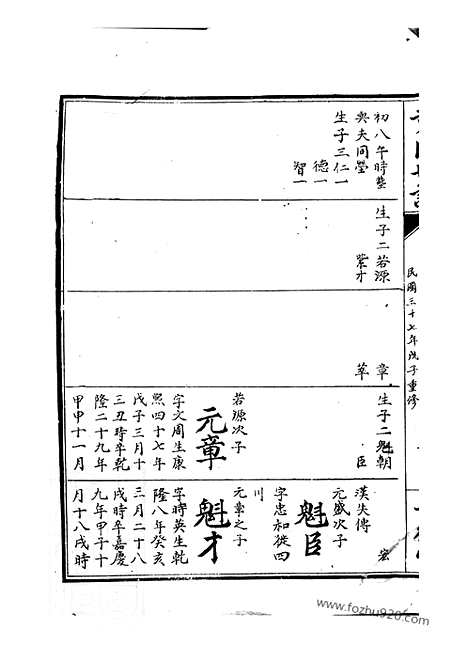 民國三十七年戊子重修
初八午時塟
與夫同塋
生子三仁一
德一
智一
生子二若源
紫才
章
萃
生子二魁朝
臣
若源次子
元章
字文周生康
熙四十七年
戊子三月十
三丑時卒乾
隆二十九年
甲申十一月
宏
漢失傳
元盛次子
魁臣
字忠和從四
川
元章之子
魁才
字時英生乾
隆八年癸亥
三月二十八
戌時卒嘉慶
九年甲子十
月十八戌時
www.fozhu920.com